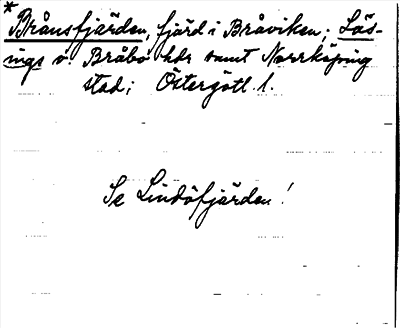 * Bränsfjärden, fjärd i Bråviken; Lös-
ings o. Bråbo hdr samt Norrköping
stad; Östergötl. l.
Se Lindöfjärden!